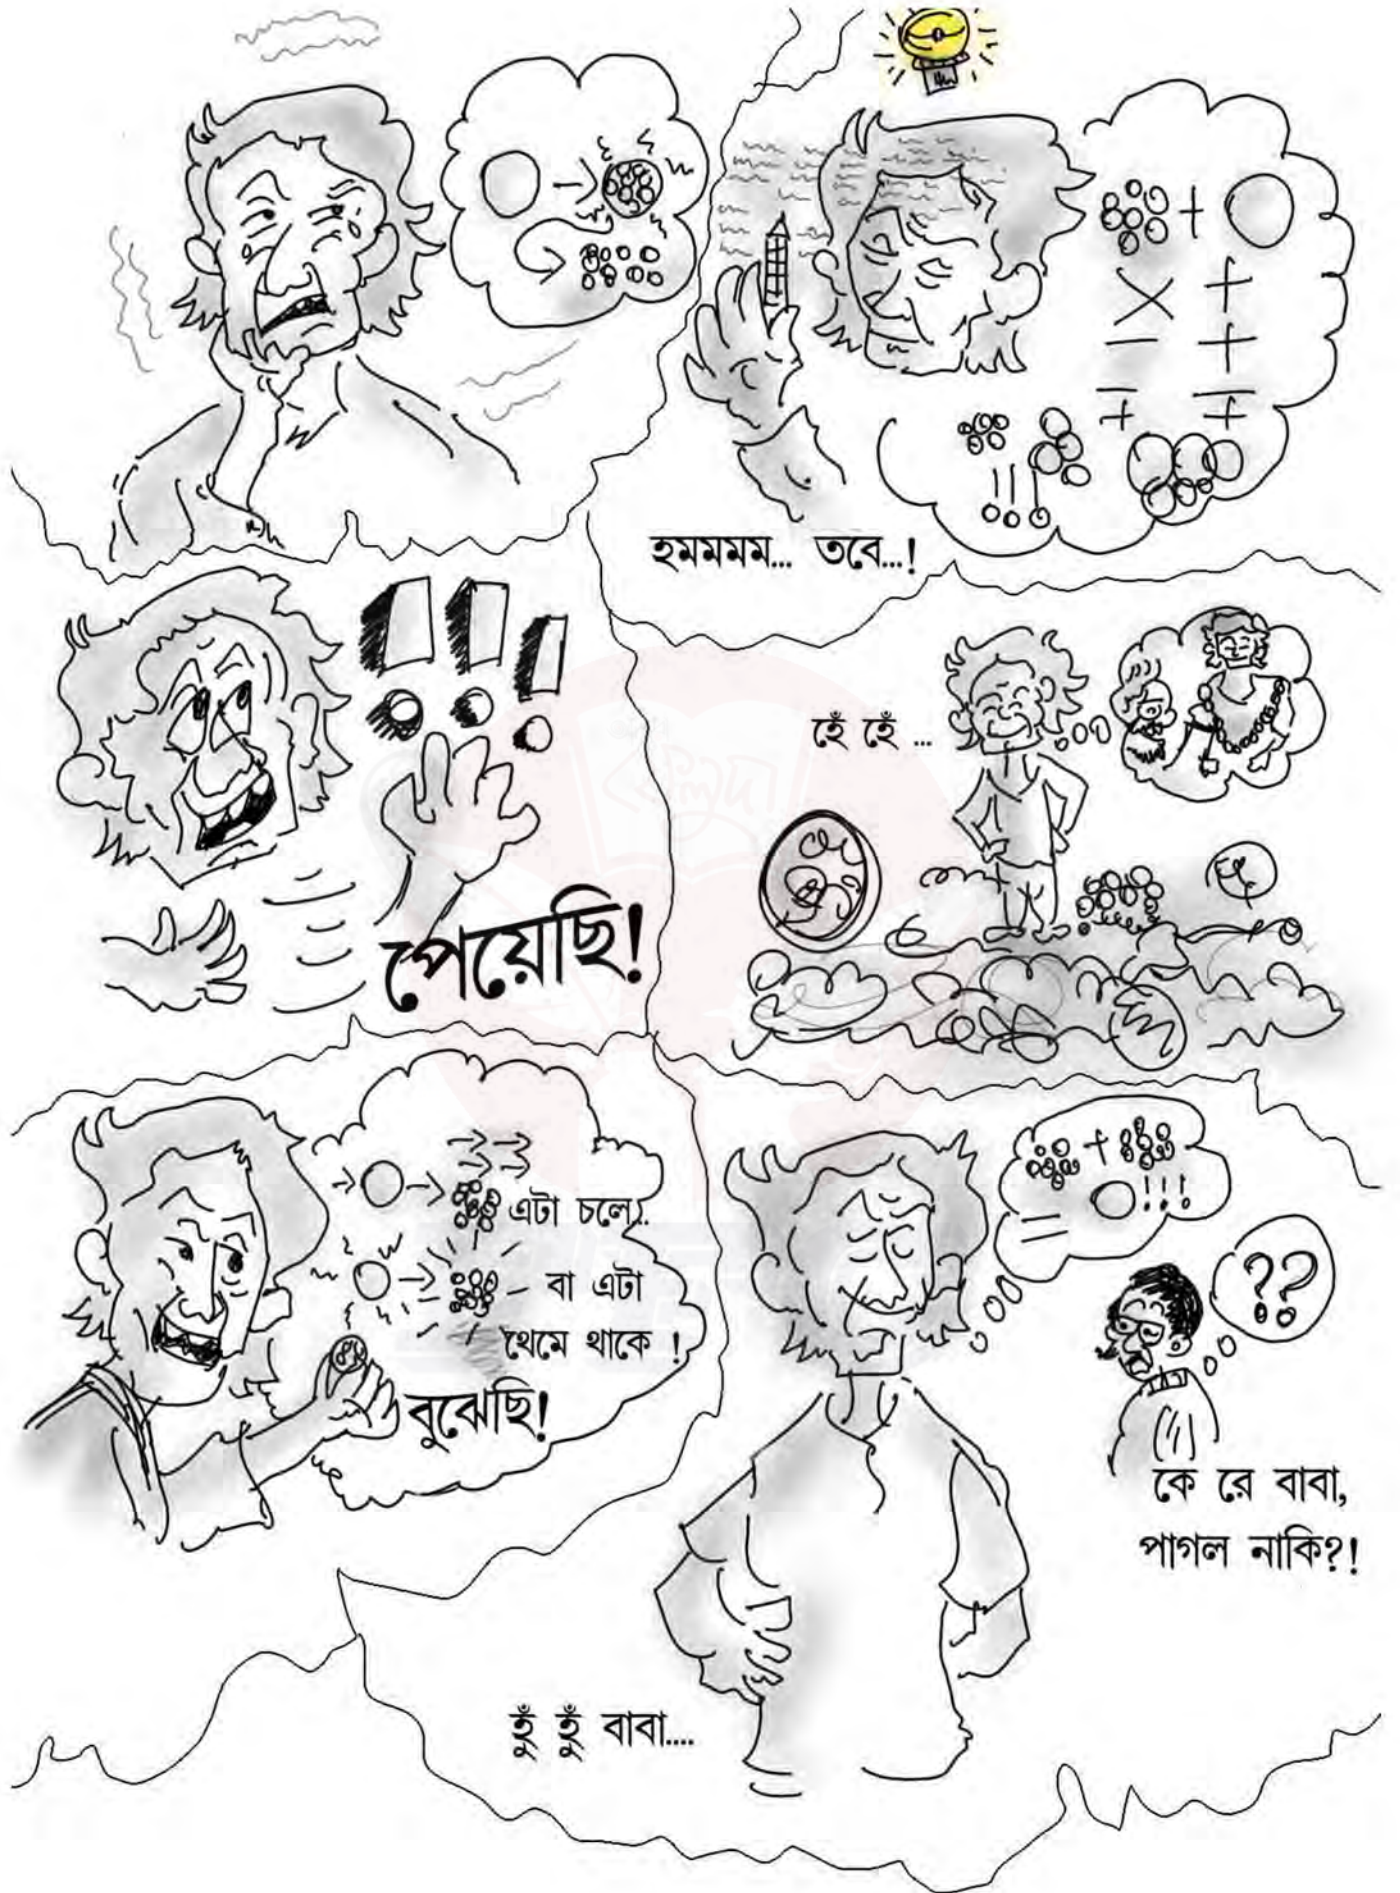 হমমমম... তবে...!
পেয়েছি!
হেঁ হেঁ ...
এটা চলে..
বা এটা
থেমে থাকে !
বুঝেছি!
কে রে বাবা,
পাগল নাকি?!
হুঁ হুঁ বাবা....